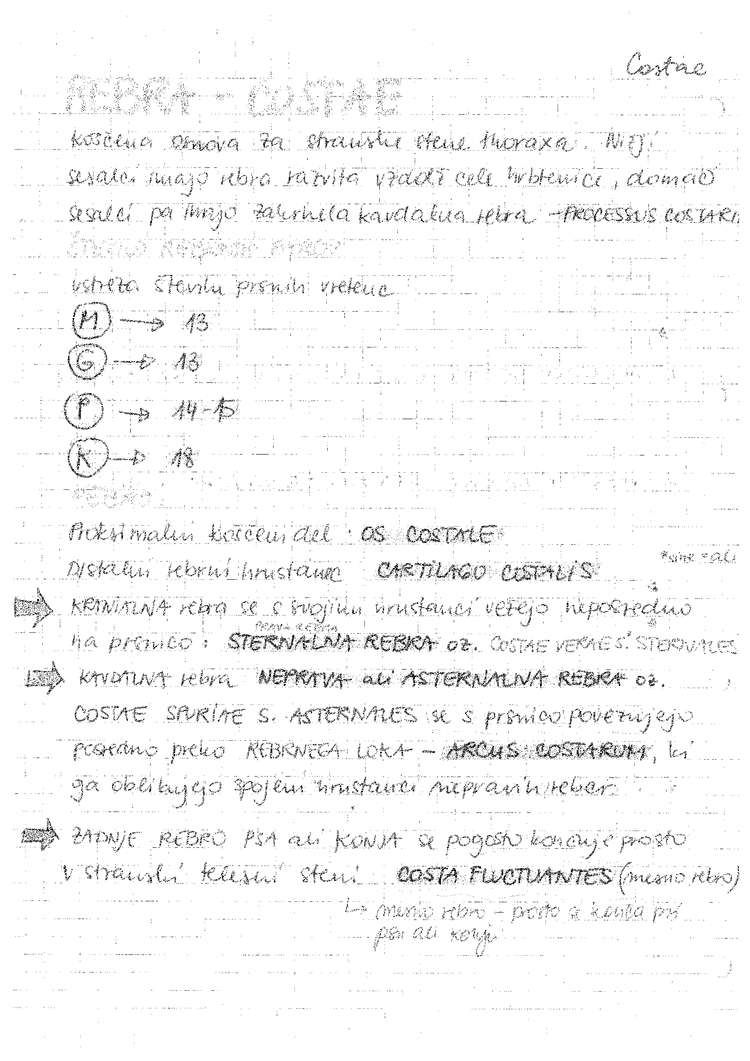 Costae
REBRA - COSTAE
koščena osnova za stranske stene thoraxa. Nižji
sesalci imajo rebra razvita vzdolž cele hrbtenice, domači
sesalci pa imajo zakrnela kavdalna rebra - PROCESSUS COSTARI
ŠTEVILO REBRNIH PAROV
ustreza številu prsnih vretenc
M → 13
G → 13
P → 14-15
K → 18
REBRO
Proksimalni koščeni del : OS COSTALE
Distalni rebrni hrustanec CARTILAGO COSTALIS
*sive = ali
KRANIALNA rebra se s svojimi hrustanci vežejo neposredno
PRAVA REBRA
na prsnico : STERNALNA REBRA oz. COSTAE VERAE S. STERNALES
KAVDALNA rebra NEPRAVA ali ASTERNALNA REBRA oz.
COSTAE SPURIAE S. ASTERNALES se s prsnico povezujejo
posredno preko REBRNEGA LOKA - ARCUS COSTARUM, ki
ga oblikujejo spojeni hrustanci nepravih reber.
ZADNJE REBRO PSA ali KONJA se pogosto končuje prosto
v stranski telesni steni COSTA FLUCTUANTES (mesno rebro)
↳ mesno rebro - prosto se konča pri
psu ali konju